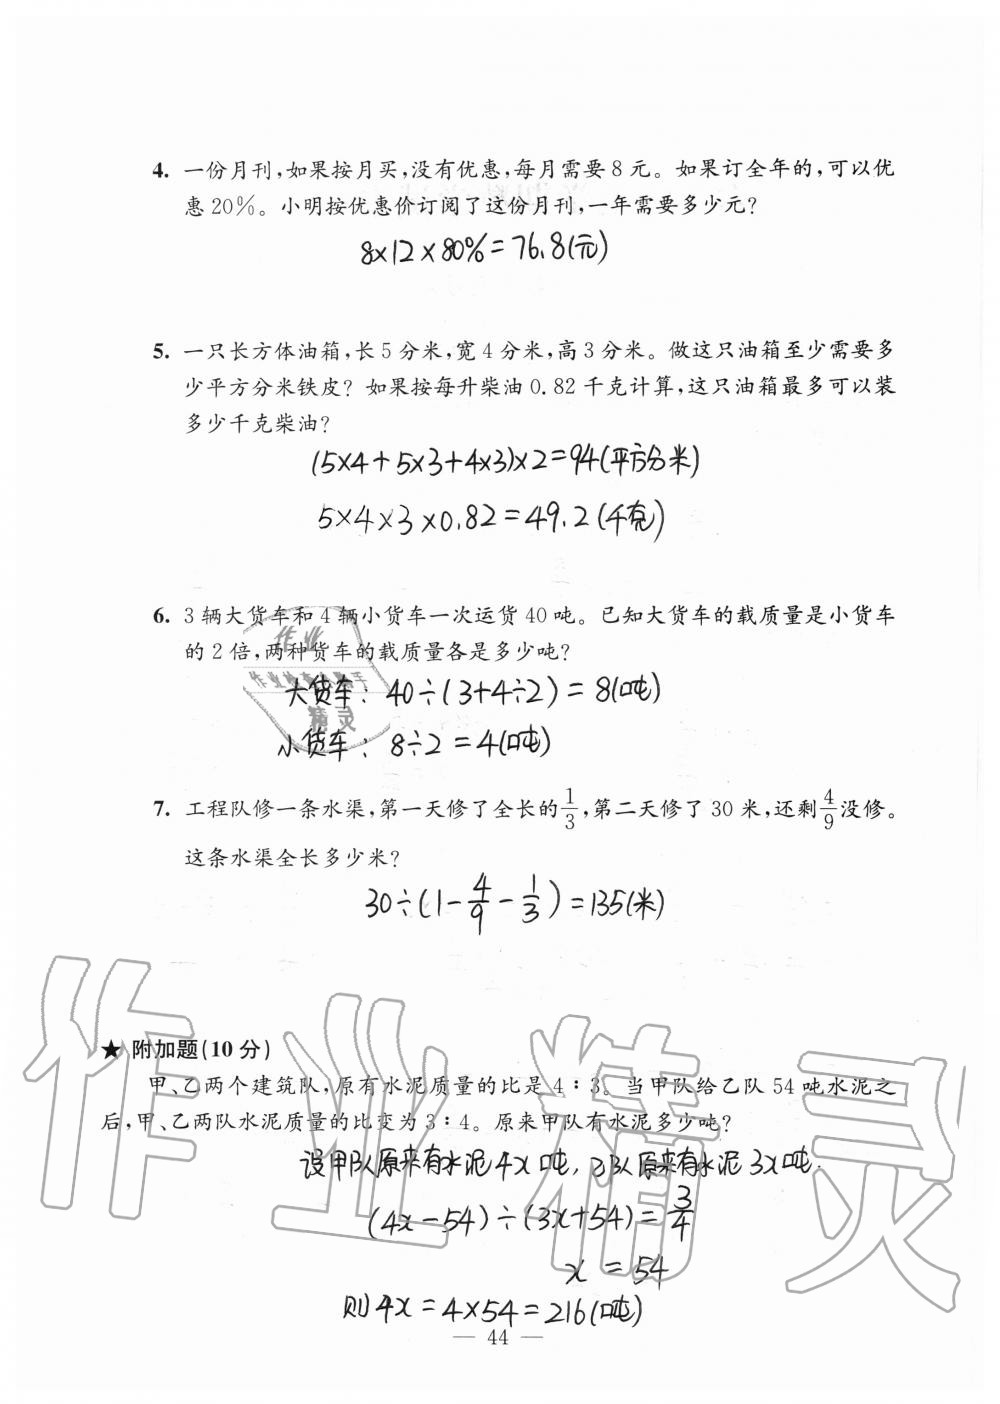 4. 一份月刊,如果按月买,没有优惠,每月需要8元。如果订全年的,可以优
惠20%。小明按优惠价订阅了这份月刊,一年需要多少元?
8×12×80%=76.8(元)
5. 一只长方体油箱,长5分米,宽4分米,高3分米。做这只油箱至少需要多
少平方分米铁皮? 如果按每升柴油0.82千克计算,这只油箱最多可以装
多少千克柴油?
(5×4+5×3+4×3)×2=94(平方分米)
5×4×3×0.82=49.2(千克)
6. 3辆大货车和4辆小货车一次运货40吨。已知大货车的载质量是小货车
的2倍,两种货车的载质量各是多少吨?
大货车: 40÷(3+4÷2)=8(吨)
小货车: 8÷2=4(吨)
7. 工程队修一条水渠,第一天修了全长的1/3,第二天修了30米,还剩4/9没修。
这条水渠全长多少米?
30÷(1-4/9-1/3)=135(米)
作业精灵
★ 附加题(10分)
甲、乙两个建筑队,原有水泥质量的比是4∶3。当甲队给乙队54吨水泥之
后,甲、乙两队水泥质量的比变为3∶4。原来甲队有水泥多少吨?
设甲队原来有水泥4x吨,乙队原来有水泥3x吨.
(4x-54)÷(3x+54)=3/4
x=54
则4x=4×54=216(吨)
— 44 —